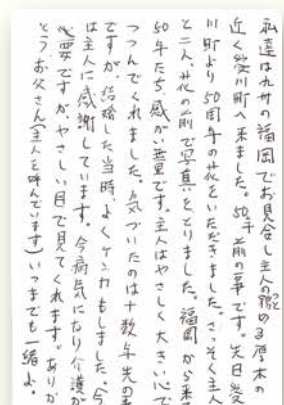 私達は九州の福岡でお見合し主人の務める厚木の
近く愛川町へ来ました。50年前の事です。先日愛
川町より50周年の花をいただきました。さっそく主人
と二人、花の前で写真をとりました。福岡から来て
50年たち、感がい無量です。主人はやさしく大きい心で
つつんでくれました。気づいたのは十数年先の事
ですが、結婚した当時、よくケンカもしました。今
は主人に感謝しています。今病気になり介護が
必要ですが、やさしい目で見てくれます。ありが
とうお父さん(主人を呼んでいます)いつまでも一緒よ。